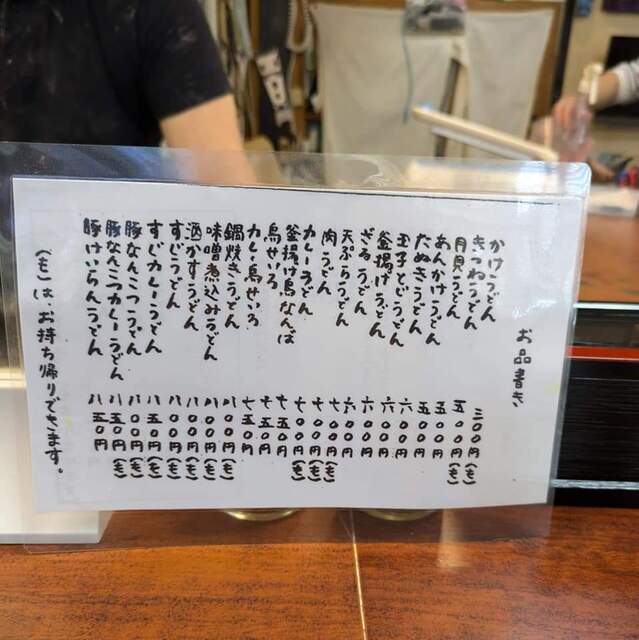 お品書き
かけうどん 三〇〇円(も)
きつねうどん 五〇〇円(も)
月見うどん 五〇〇円
あんかけうどん 五〇〇円
たぬきうどん 六〇〇円
玉子とじうどん 六〇〇円
釜揚げうどん 六〇〇円
ざるうどん 六〇〇円
天ぷらうどん 七〇〇円(も)
肉うどん 七〇〇円(も)
カレーうどん 七〇〇円(も)
釜揚げ鳥なんば 七五〇円
鳥せいろ 七五〇円
カレー鳥せいろ 七五〇円
鍋焼きうどん 八〇〇円(も)
味噌煮込みうどん 八〇〇円(も)
酒かすうどん 八〇〇円(も)
すじうどん 八〇〇円(も)
すじカレーうどん 八五〇円(も)
豚なんこつうどん 八〇〇円(も)
豚なんこつカレーうどん 八五〇円(も)
豚けいらんうどん 八五〇円
(も)は、お持ち帰りできます。